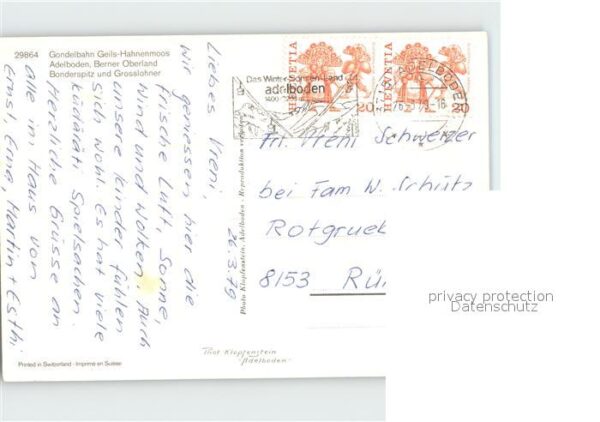 29864 Gondelbahn Geils-Hahnenmoos
Adelboden, Berner Oberland
Bonderspitz und Grosslohner
26.3.79
Liebes Vreni,
wir geniessen hier die
frische Luft, Sonne,
Wind und Wolken. Auch
unsere Kinder fühlen
sich wohl. Es hat viele
Spielsachen.
Herzliche Grüsse an
alle im Haus von
Ernst, Erna, Martin + Esthi
Photo Klopfenstein, Adelboden - Reproduktion verboten
Printed in Switzerland - Imprimé en Suisse
Phot Klopfenstein
Adelboden
HELVETIA
20
HELVETIA
20
Das Winter-Sonnen-Land
adelboden
1400
ADELBODEN
Frl. Vreni Schweizer
bei Fam W. Schütz
Rotgrueb
8153 Rüm
privacy protection
Datenschutz